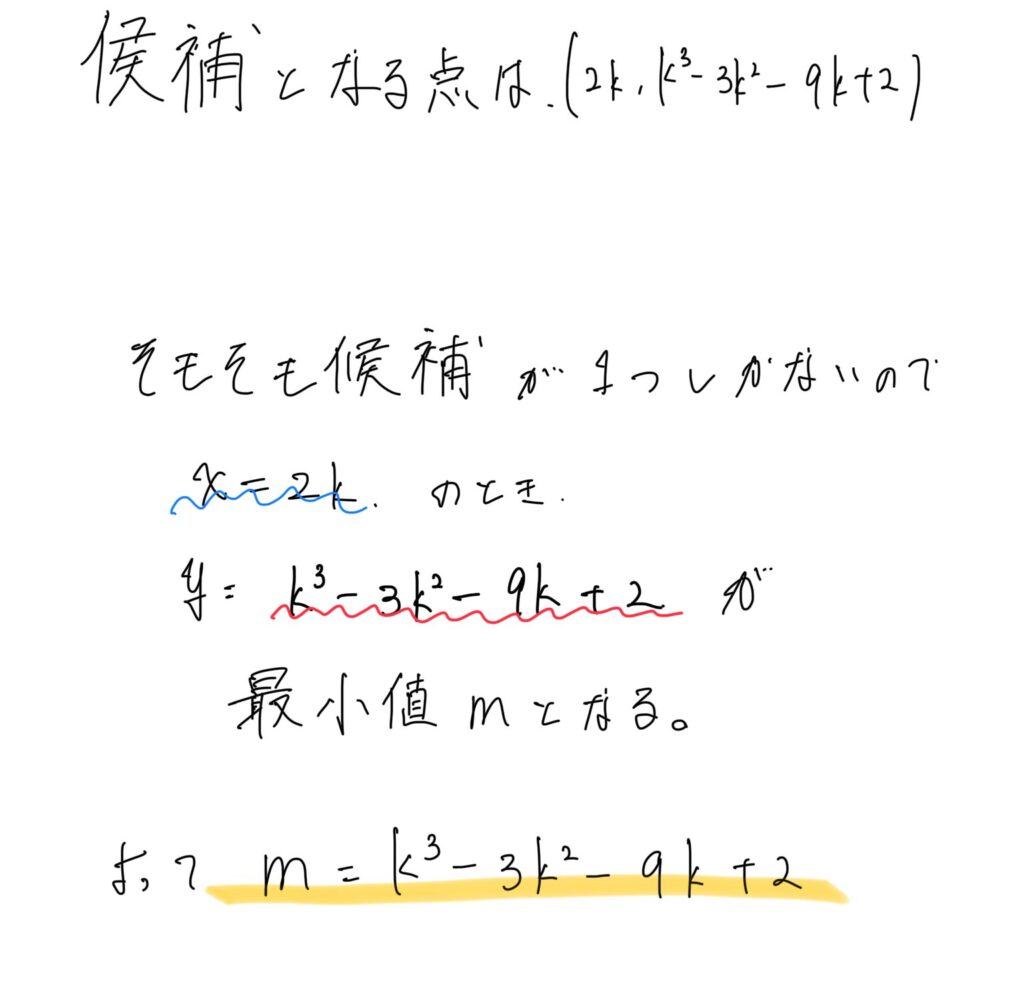 候補となる点は.(2k, k³-3k²-9k+2)
そもそも候補が1つしかないので
x=2k. のとき.
y= k³-3k²-9k+2 が
最小値mとなる。
よって m=k³-3k²-9k+2